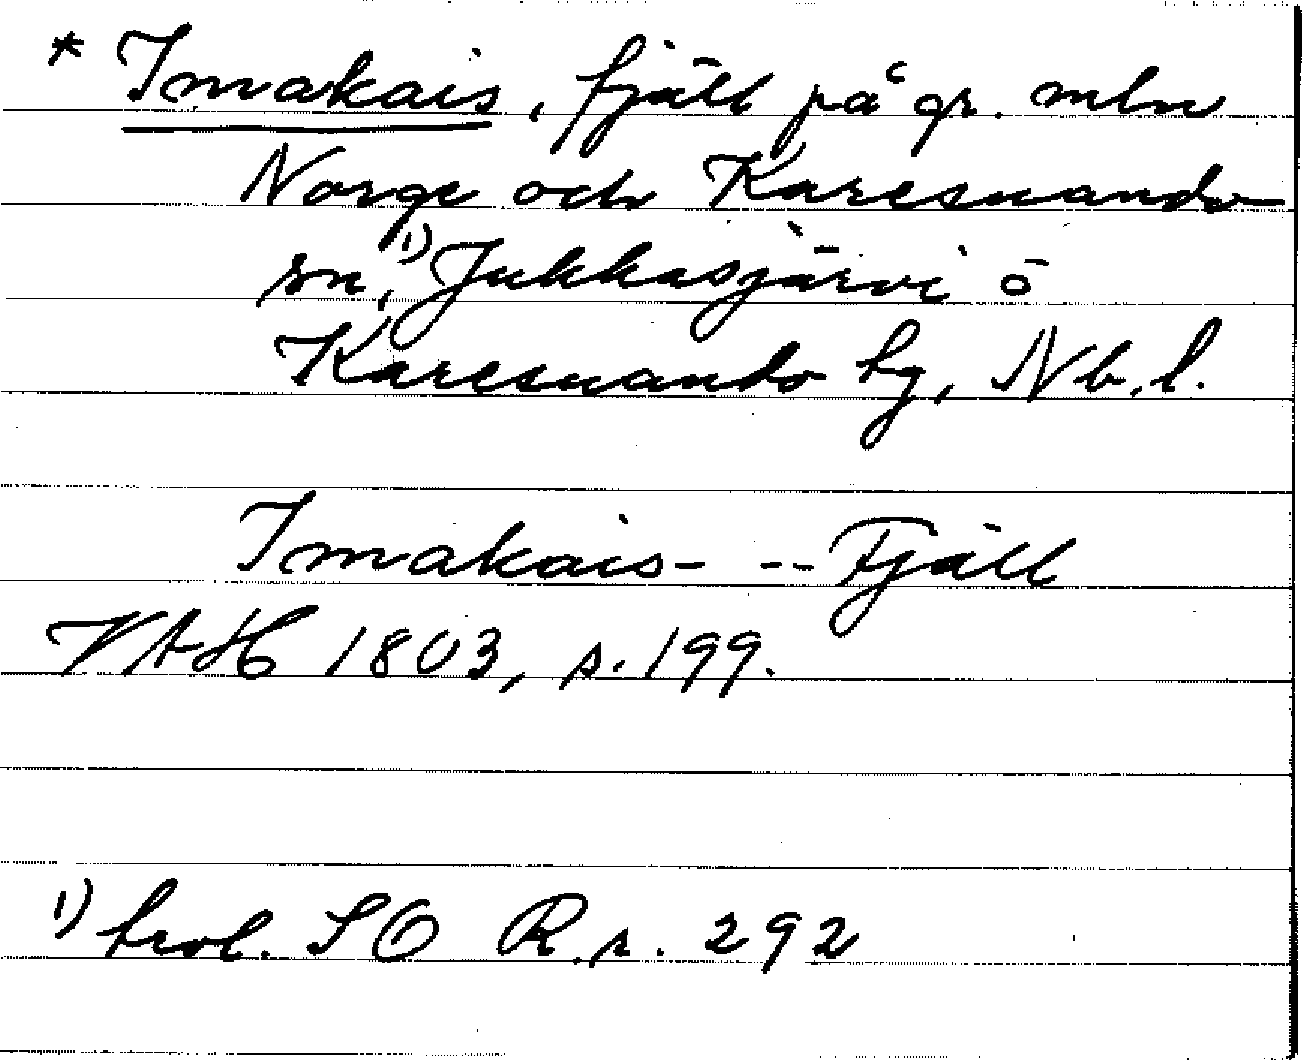 * Imakais, fjäll på gr. mln
Norge och Karesuando
sn,¹) Jukkasjärvi o
Karesuando lg, Nb. l.
Imakais- -- Fjäll
VAH 1803, s. 199.
¹) trol. SO R. s. 292